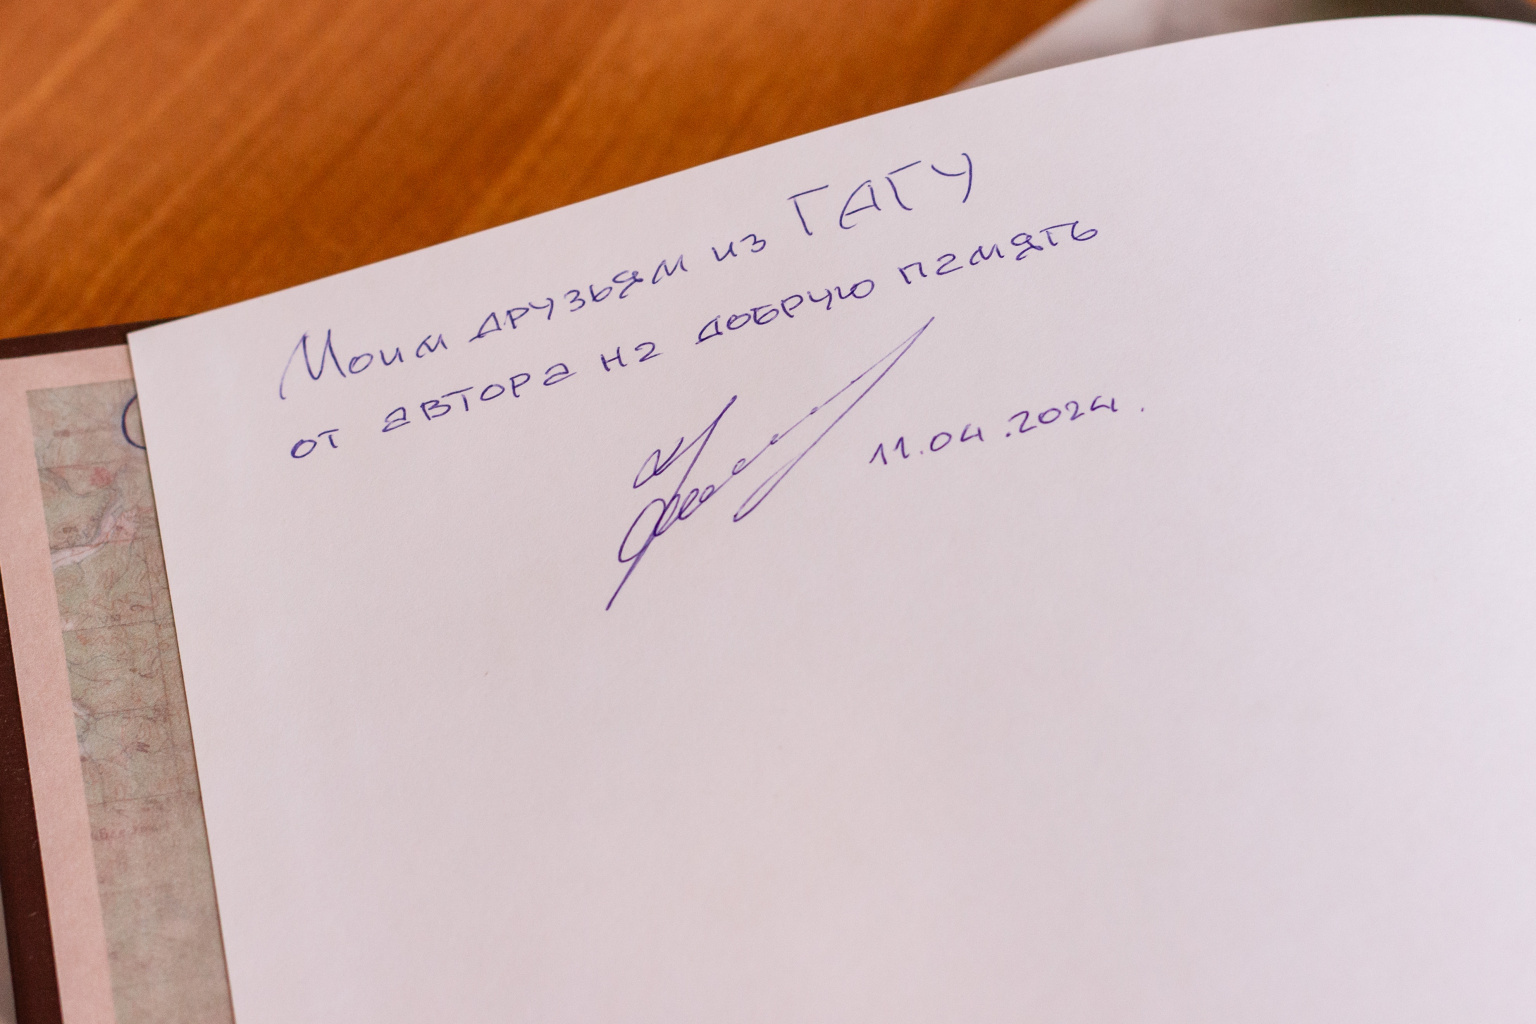 Моим друзьям из ГАГУ
от автора на добрую память
11.04.2024.